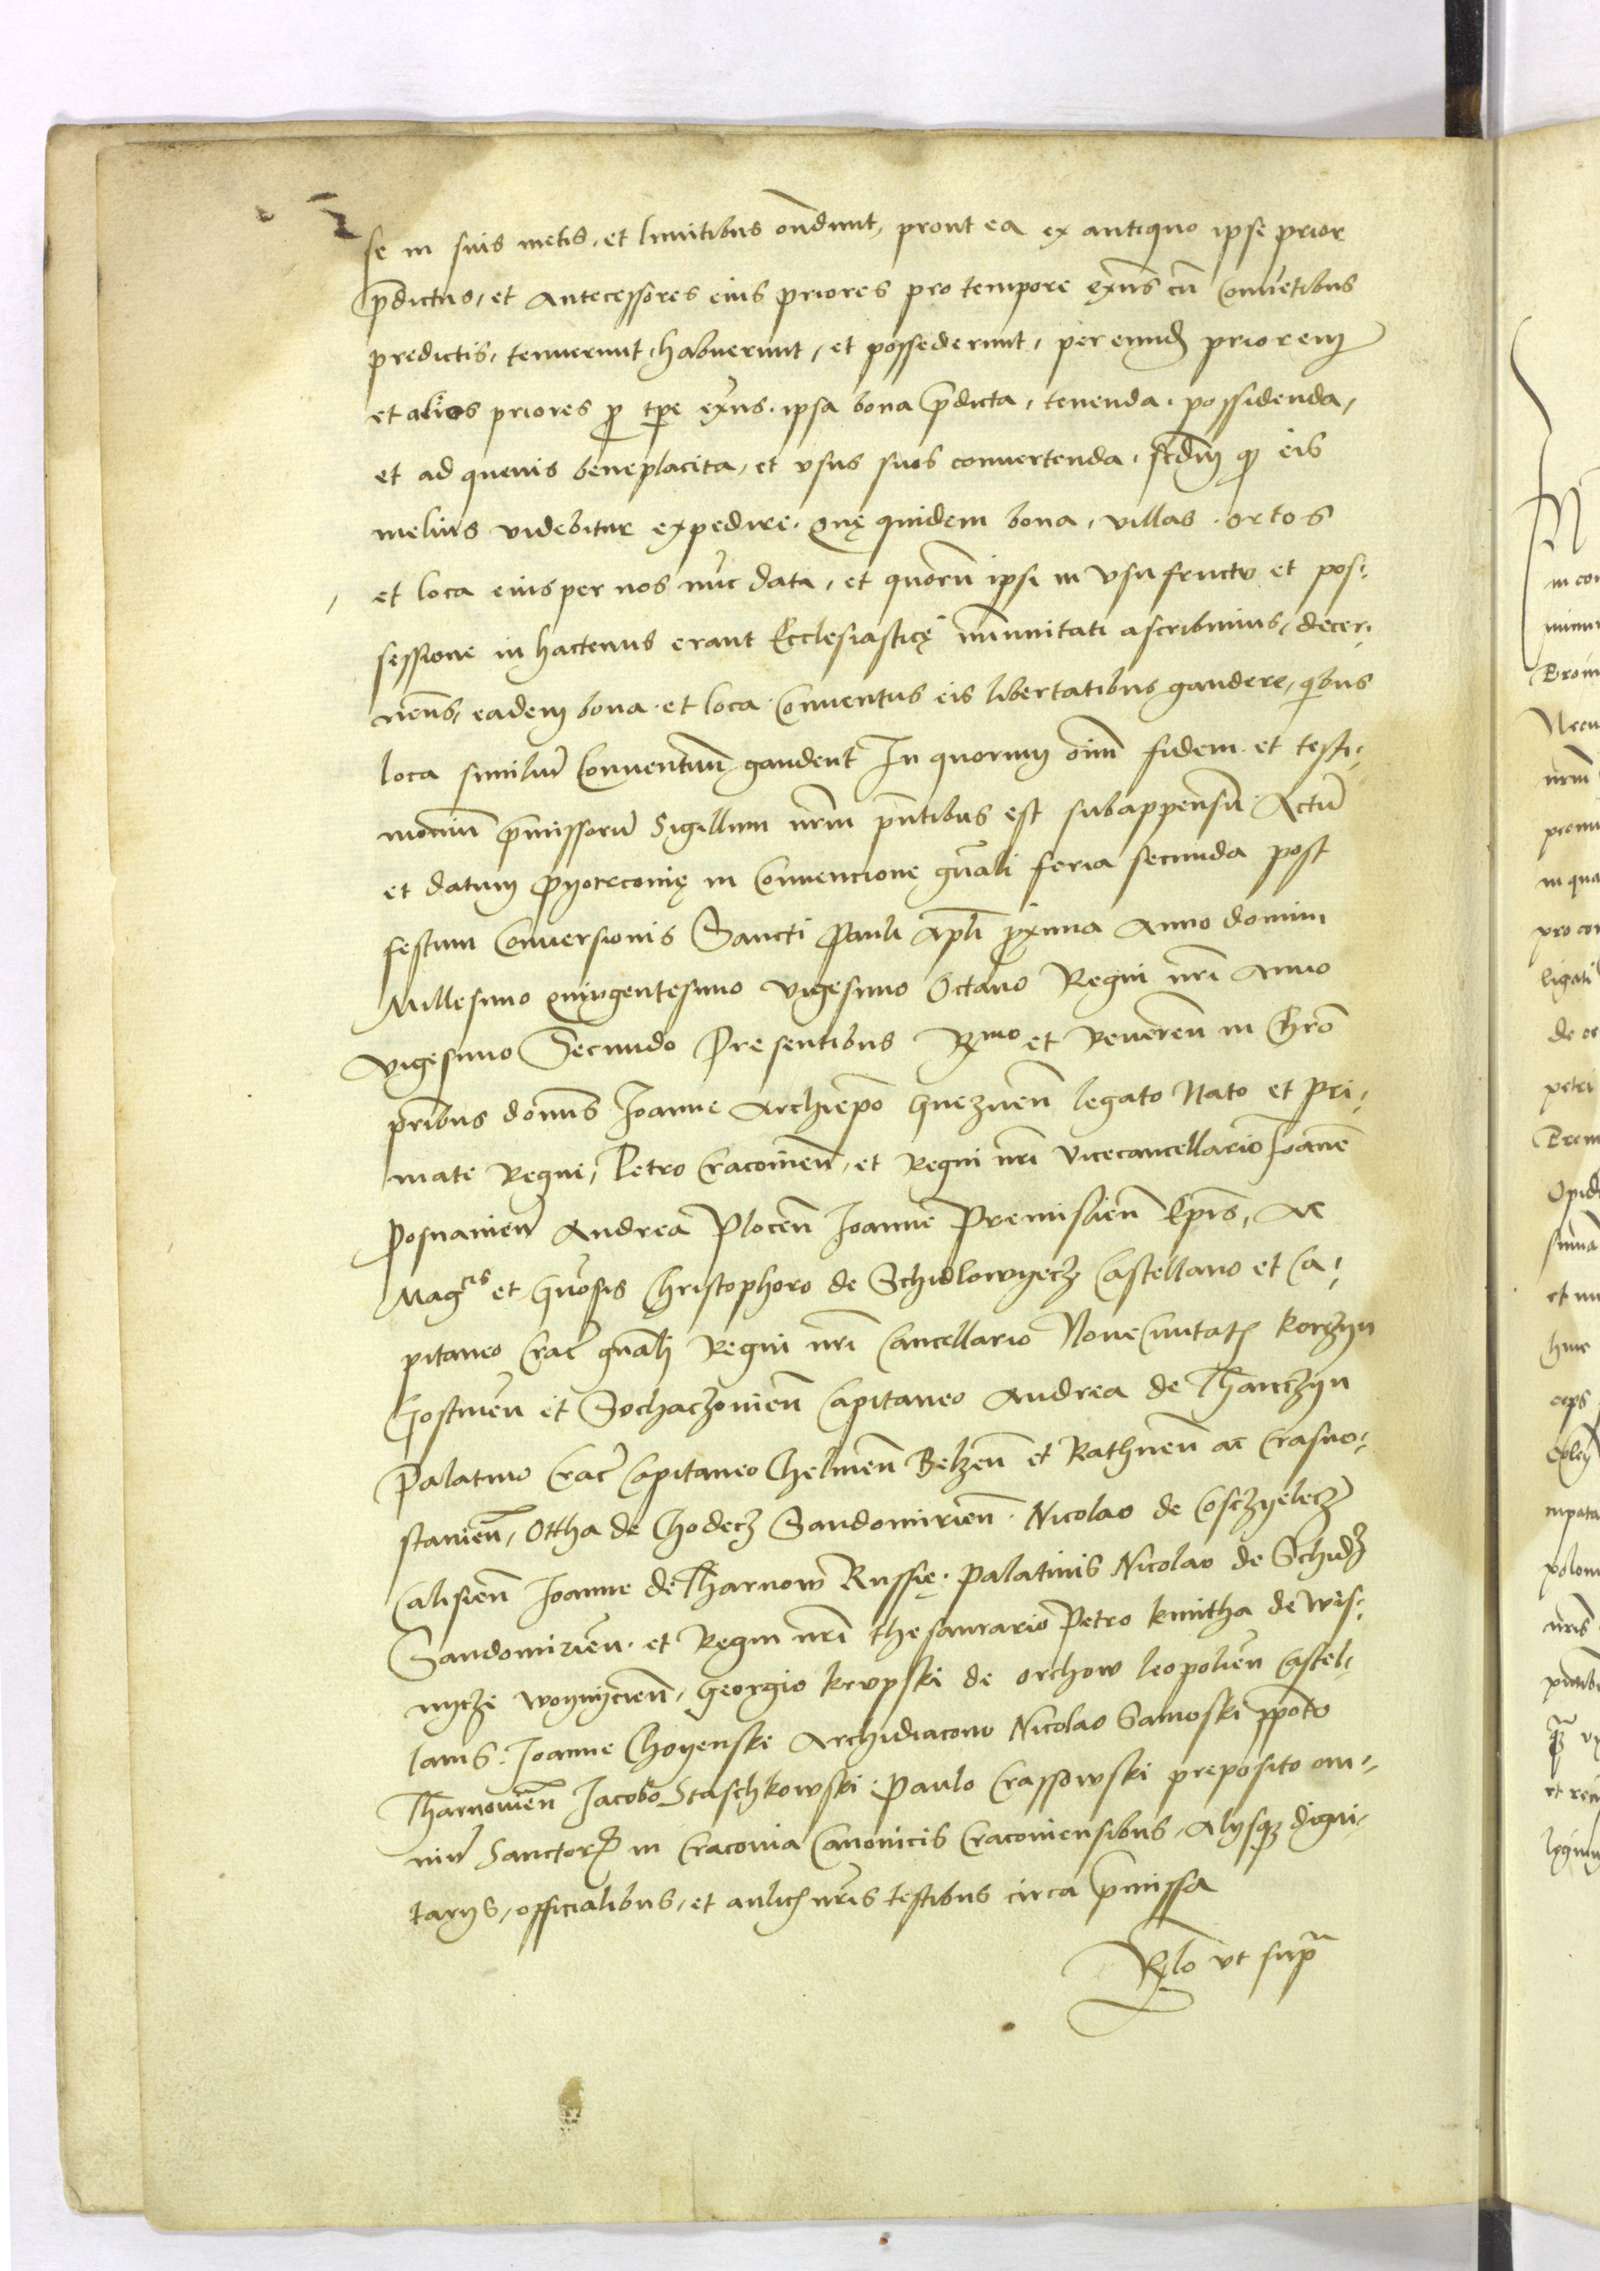 se in suis metis, et limitibus ondunt, prout ea ex antiquo ipse prior
pdictus, et Antecessores eius priores pro tempore exns cu Conuetibus
predictis, tenuerunt, habuerunt, et possederunt, per eund priorem
et alios priores p tpe exns. ipsa bona pdicta, tenenda. possidenda,
et ad queuis beneplacita, et vsus suos conuertenda. scdm q eis
melius videbitur expedire. Quę quidem bona, villas. ortos
et loca eius per nos nuc data, et quoru ipsi in vsufructu et pos-
sessione in hactenus erant Ecclesiasticę immunitati ascribimus, decer-
nens, eadem bona. et loca. Conuentus eis libertatibus gaudere, quibus
loca similiu Conuentuu gaudent In quorum oim fidem et testi-
moniu pmissoru Sigillum nrm pntibus est subappensu. Actu
et datum Pyotrconię in Conuencione gnali feria secunda post
festum Conuersionis Sancti Pauli Apli pxima Anno domini
Millesimo Quingentesimo Vigesimo Octauo Regni nri Anno
vigesimo Secundo Presentibus Rmo et Reueren in Chro
pribus domns Joanne Archiepo Gneznen legato Nato et Pri-
mate Regni, Petro Cracouien, et Regni nri Vicecancellario Joanne
Posnanien Andrea Plocen Joanne Premislien Epis, Ac
Magcis et Gnosis Christophoro de Schidlowyecz Castellano et Ca-
pitaneo Crac gnali Regni nri Cancellario Noue Ciuitatis Korczyn
Gostinen et Sochaczouien Capitaneo Andrea de Thanczyn
Palatino Crac Capitaneo Chelmen Belzen et Rathnen ac Crasno-
stauien, Ottha de Chodecz Sandomirien. Nicolao de Cosczyelecz
Calisien Joanne de Tharnow Russię. Palatinis Nicolao de Schidl
Sandomirien. et Regni nri thesaurario Petro Kmitha de Wis-
nycze Woynycien, Georgio Krupski de Orchow leopolien Castel-
lanis. Joanne Choyenski Archidiacono Nicolao Samoski ppoto
Tharnouien Jacobo Staschkowski. Paulo Crassowski preposito om-
niu Sanctor in Cracouia Canonicis Cracouiensibus, Alysq digni-
tarys, officialibus, et aulicis nris testibus circa pmissa
Rlo vt supra